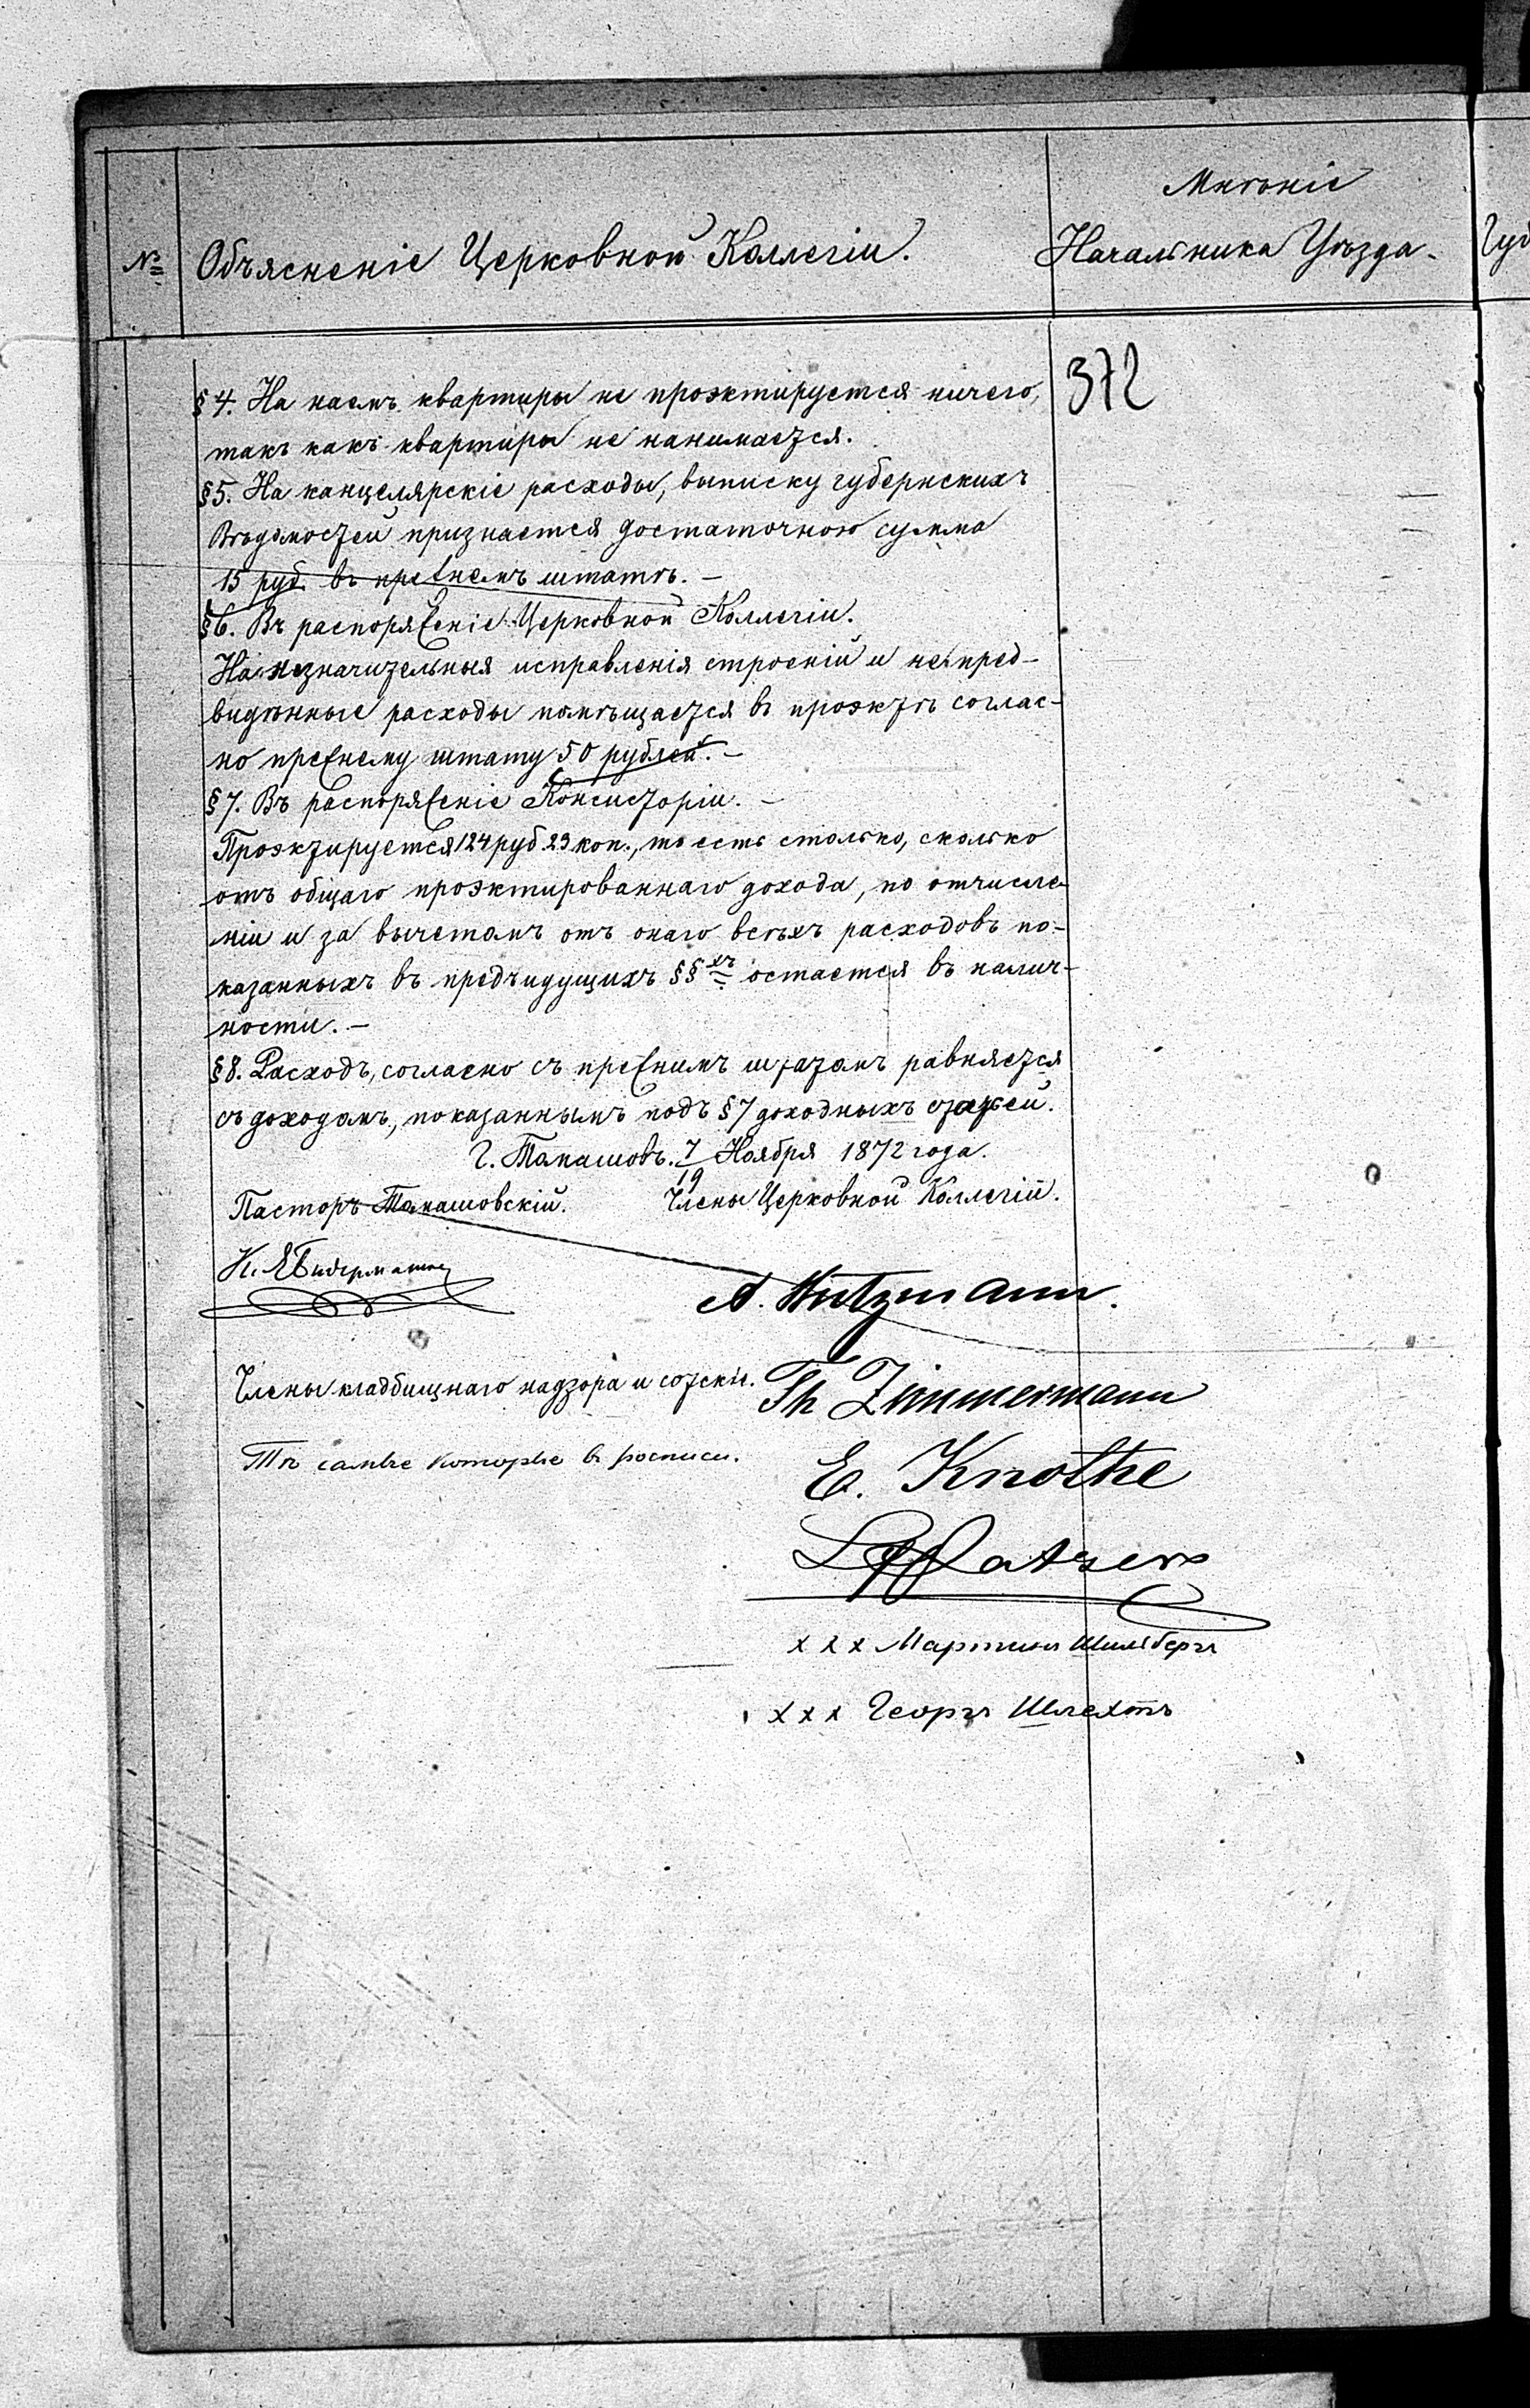 Мнѣніе
№ Объясненіе Церковной Коллегіи. Начальника Уѣзда.
372
§ 4. На наемъ квартиры не проэктируется ничего,
такъ какъ квартиры не нанимается.
§ 5. На канцелярскіе расходы, выписку губернскихъ
Вѣдомостей признается достаточною сумма
15 руб. въ прежнемъ штатѣ. –
§ 6. Въ распоряженіе Церковной Коллегіи.
На незначительныя исправленія строеній и непред-
видѣнные расходы помѣщается въ проэктѣ соглас-
но прежнему штату 50 рублей. –
§ 7. Въ распоряженіе Консисторіи. –
Проэктируется 124 руб 23 коп., то есть столько, сколько
отъ общаго проэктированнаго дохода, по отчисле-
ніи и за вычетомъ отъ онаго всѣхъ расходовъ по-
казанныхъ въ предъидущихъ §§ хъ остается въ налич-
ности. –
§ 8. Расходъ, согласно съ прежнимъ штатомъ равняется
съ доходомъ, показаннымъ подъ § 7 доходныхъ статей.
Г. Томашовъ. 7/19 Ноября 1872 года.
Пасторъ Томашовскій. Члены Церковной Коллегіи.
К. Бидерманъ
A. Knotzmann.
Члены кладбищнаго надзора и сотскіе.
Th Zimmermann
Тѣ самые которые въ росписи.
E. Knothe
xxx Мартинъ Шильбергъ
xxx Георгъ Шлехтъ